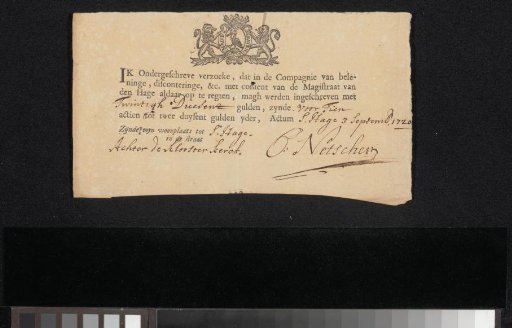 IK Ondergeschreve verzoeke, dat in de Compagnie van bele-
ninge, disconteringe, &c. met consent van de Magistraat van
den Hage aldaar op te regten, magh werden ingeschreven met
Twintigh Duesent gulden, zynde voor Tien
actien tot twee duysent gulden yder, Actum S. Hage 3 Septemb 1720
Zynde myn woonplaats tot S. Hage.
in de straat
Achter de Klooster kerck.
C. Netscher